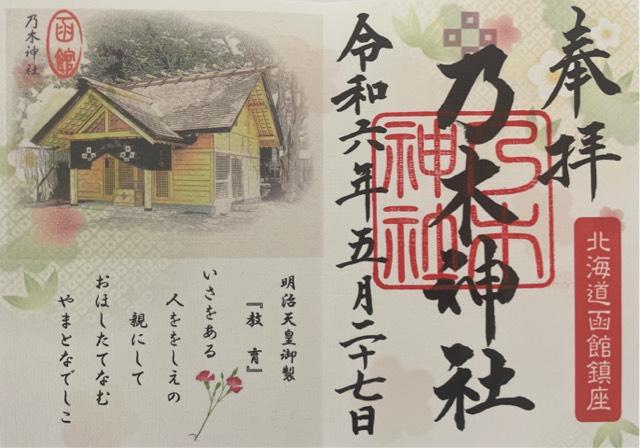 奉拝
乃木神社
乃木神社
令和六年五月二十七日
北海道函館鎮座
函館
乃木神社
明治天皇御製
『教育』
いさをある
人ををしえの
親にして
おほしたてなむ
やまとなでしこ